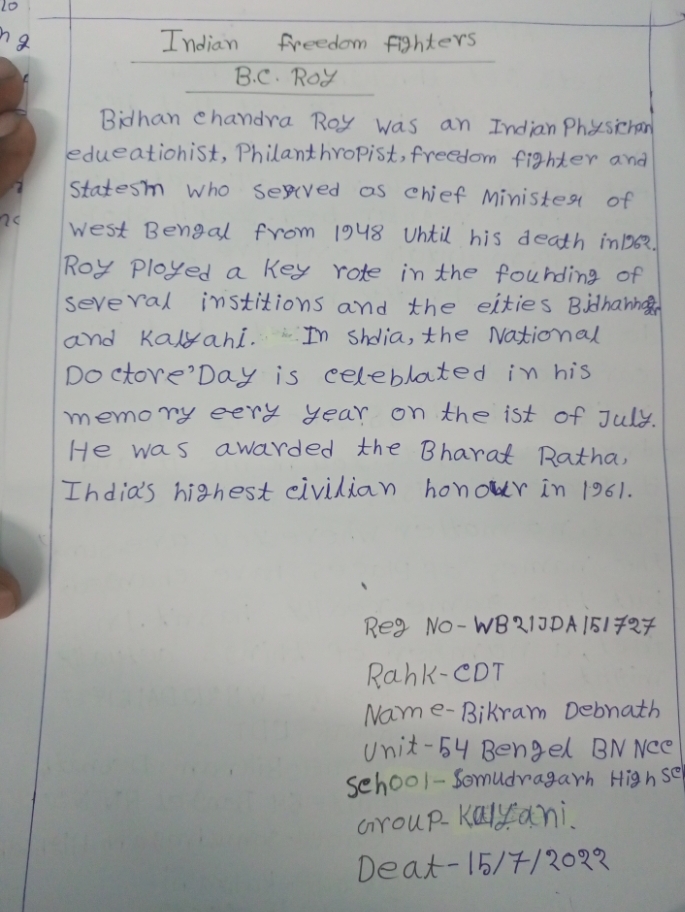 Indian freedom fighters
B.C. ROY
Bidhan chandra Roy was an Indian Physichan
edueationhist, Philanthropist, freedom fighter and
Statesm who served as chief Minister of
West Bengal from 1948 Uhtil his death in 1962.
Roy Ployed a Key rote in the foundihg of
several institions and the eities Bidhannagar
and Kalyahi. In Shdia, the National
Doctore' Day is celeblated in his
memory eery year on the ist of July.
He was awarded the Bharat Ratha,
Ihdia's highest civilian honour in 1961.
Reg No - WB21JDA151727
Rahk - CDT
Name - Bikram Debnath
Unit - 54 Bengel BN Ncc
School - Somudragarh High Sc
Group - Kalyani.
Deat - 15/7/2022